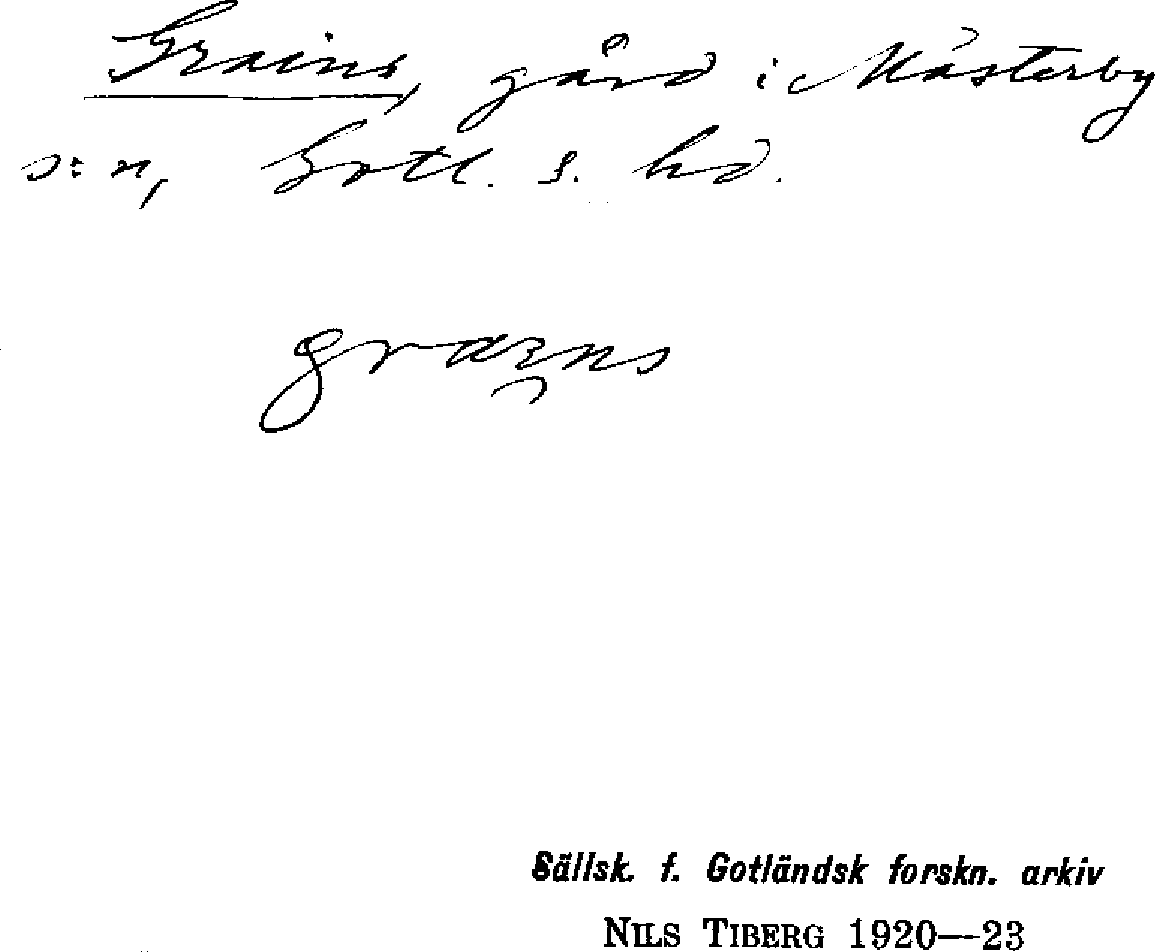 Grains, gård i Mästerby
s:n, Gotl. s. hd.
graɪ̯ns
Sällsk. f. Gotländsk forskn. arkiv
NILS TIBERG 1920—23